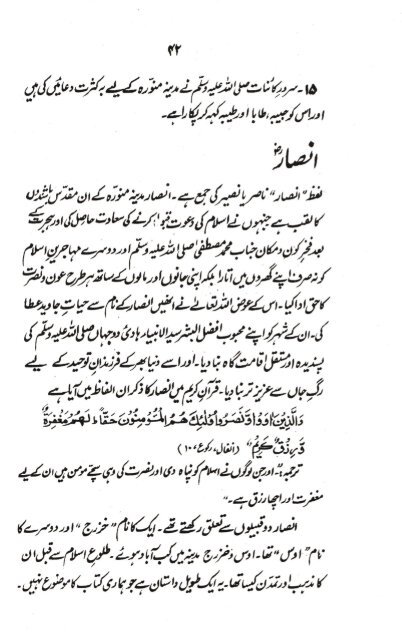 ۴۲
۱۵ - سرورِ کائنات صلی اللہ علیہ وسلم نے مدینہ منورہ کے لیے بہ کثرت دعائیں کی ہیں
اور اس کو حبیبہ، طابا اور طیبہ کہہ کر پکارا ہے۔
انصارؓ
لفظ "انصار" ناصر یا نصیر کی جمع ہے۔ انصار مدینہ منورہ کے ان مقدس باشندوں
کا لقب ہے جنہوں نے اسلام کی دعوت قبول کرنے کی سعادت حاصل کی اور ہجرت کے
بعد فخرِ کون و مکان جناب محمد مصطفیٰ صلی اللہ علیہ وسلم اور دوسرے مہاجرینِ اسلام
کو نہ صرف اپنے گھروں میں اتارا بلکہ اپنی جانوں اور مالوں کے ساتھ ہر طرح عون و نصرت
کا حق ادا کیا۔ اس کے عوض اللہ تعالیٰ نے انہیں انصار کے نام سے حیاتِ جاوید عطا
کی۔ ان کے شہر کو اپنے محبوب افضل البشر سید الانبیاء ہادیِ دو جہاں صلی اللہ علیہ وسلم کی
پسندیدہ اور مستقل اقامت گاہ بنا دیا۔ اور اسے دنیا بھر کے فرزندانِ توحید کے لیے
رگِ جاں سے عزیز تر بنا دیا۔ قرآنِ کریم میں انصار کا ذکر ان الفاظ میں آیا ہے
وَالَّذِيْنَ اٰوَوْا وَّنَصَرُوْا اُولٰٓئِكَ هُمُ الْمُؤْمِنُوْنَ حَقًّا ؕ لَهُمْ مَّغْفِرَةٌ
وَّرِزْقٌ كَرِيْمٌ (انفال، رکوع ۱۰)
ترجمہ: "اور جن لوگوں نے اسلام کو پناہ دی اور نصرت کی وہی سچے مومن ہیں ان کے لیے
مغفرت اور اچھا رزق ہے۔"
انصار دو قبیلوں سے تعلق رکھتے تھے۔ ایک کا نام "خزرج" اور دوسرے کا
نام "اوس" تھا۔ اوس و خزرج مدینہ میں کب آباد ہوئے۔ طلوعِ اسلام سے قبل ان
کا مذہب اور تمدن کیسا تھا۔ یہ ایک طویل داستان ہے جو ہماری کتاب کا موضوع نہیں۔